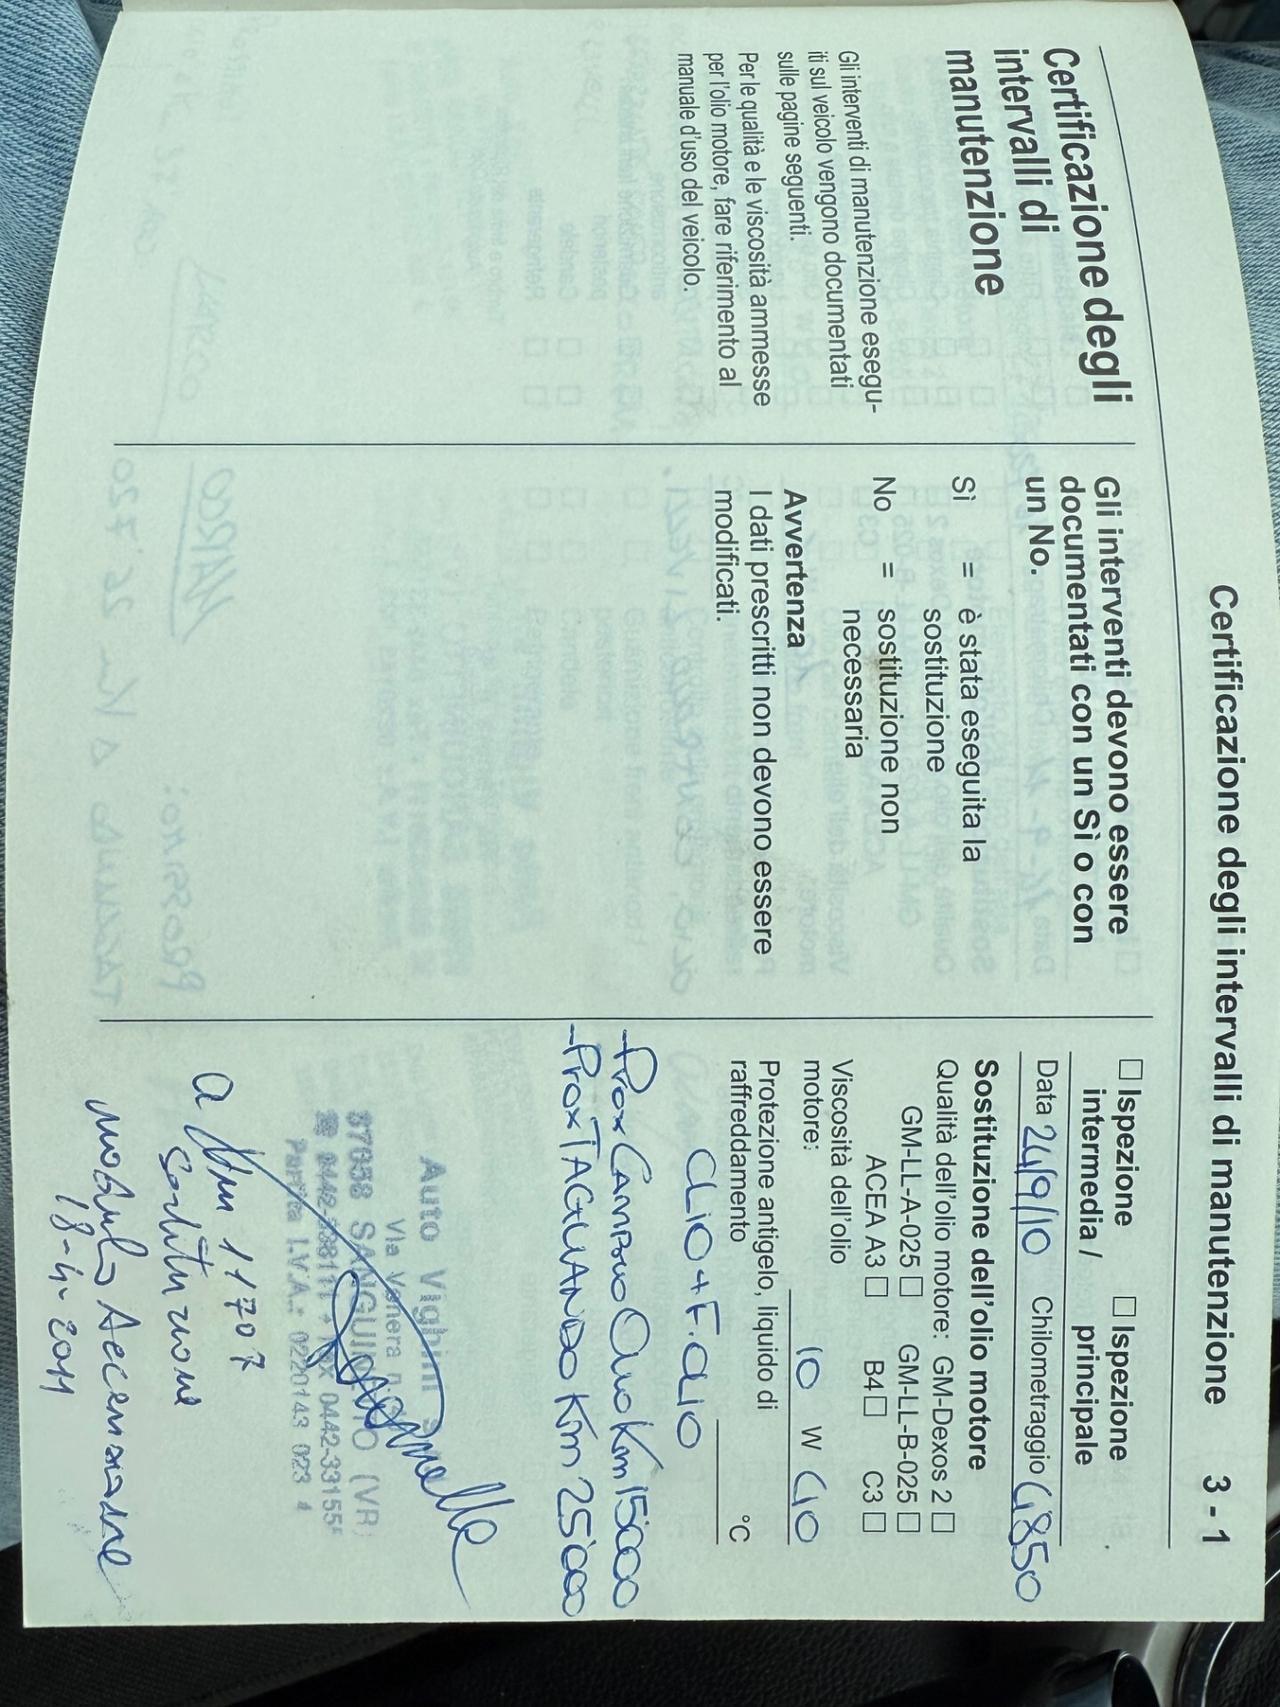 Certificazione degli intervalli di manutenzione 3 - 1
Certificazione degli
intervalli di
manutenzione
Gli interventi di manutenzione esegu-
iti sul veicolo vengono documentati
sulle pagine seguenti.
Per le qualità e le viscosità ammesse
per l'olio motore, fare riferimento al
manuale d'uso del veicolo.
Gli interventi devono essere
documentati con un Sì o con
un No.
Sì = è stata eseguita la
sostituzione
No = sostituzione non
necessaria
Avvertenza
I dati prescritti non devono essere
modificati.
☐ Ispezione ☐ Ispezione
intermedia / principale
Data 24/9/10 Chilometraggio 6'850
Sostituzione dell'olio motore
Qualità dell'olio motore: GM-Dexos 2 ☐
GM-LL-A-025 ☐ GM-LL-B-025 ☐
ACEA A3 ☐ B4 ☐ C3 ☐
Viscosità dell'olio
motore: 10 W 40
Protezione antigelo, liquido di
raffreddamento °C
OLIO + F.OLIO
-Prox CAMBIO OLIO Km 15'000
-Prox TAGLIANDO Km 25'000
Auto Vighini
Via Venera
37058 SANGUINETTO (VR)
Partita I.V.A.: 0220143 023 4
a Km 11707
sostituzione
modulo Accensione
18-4-2011